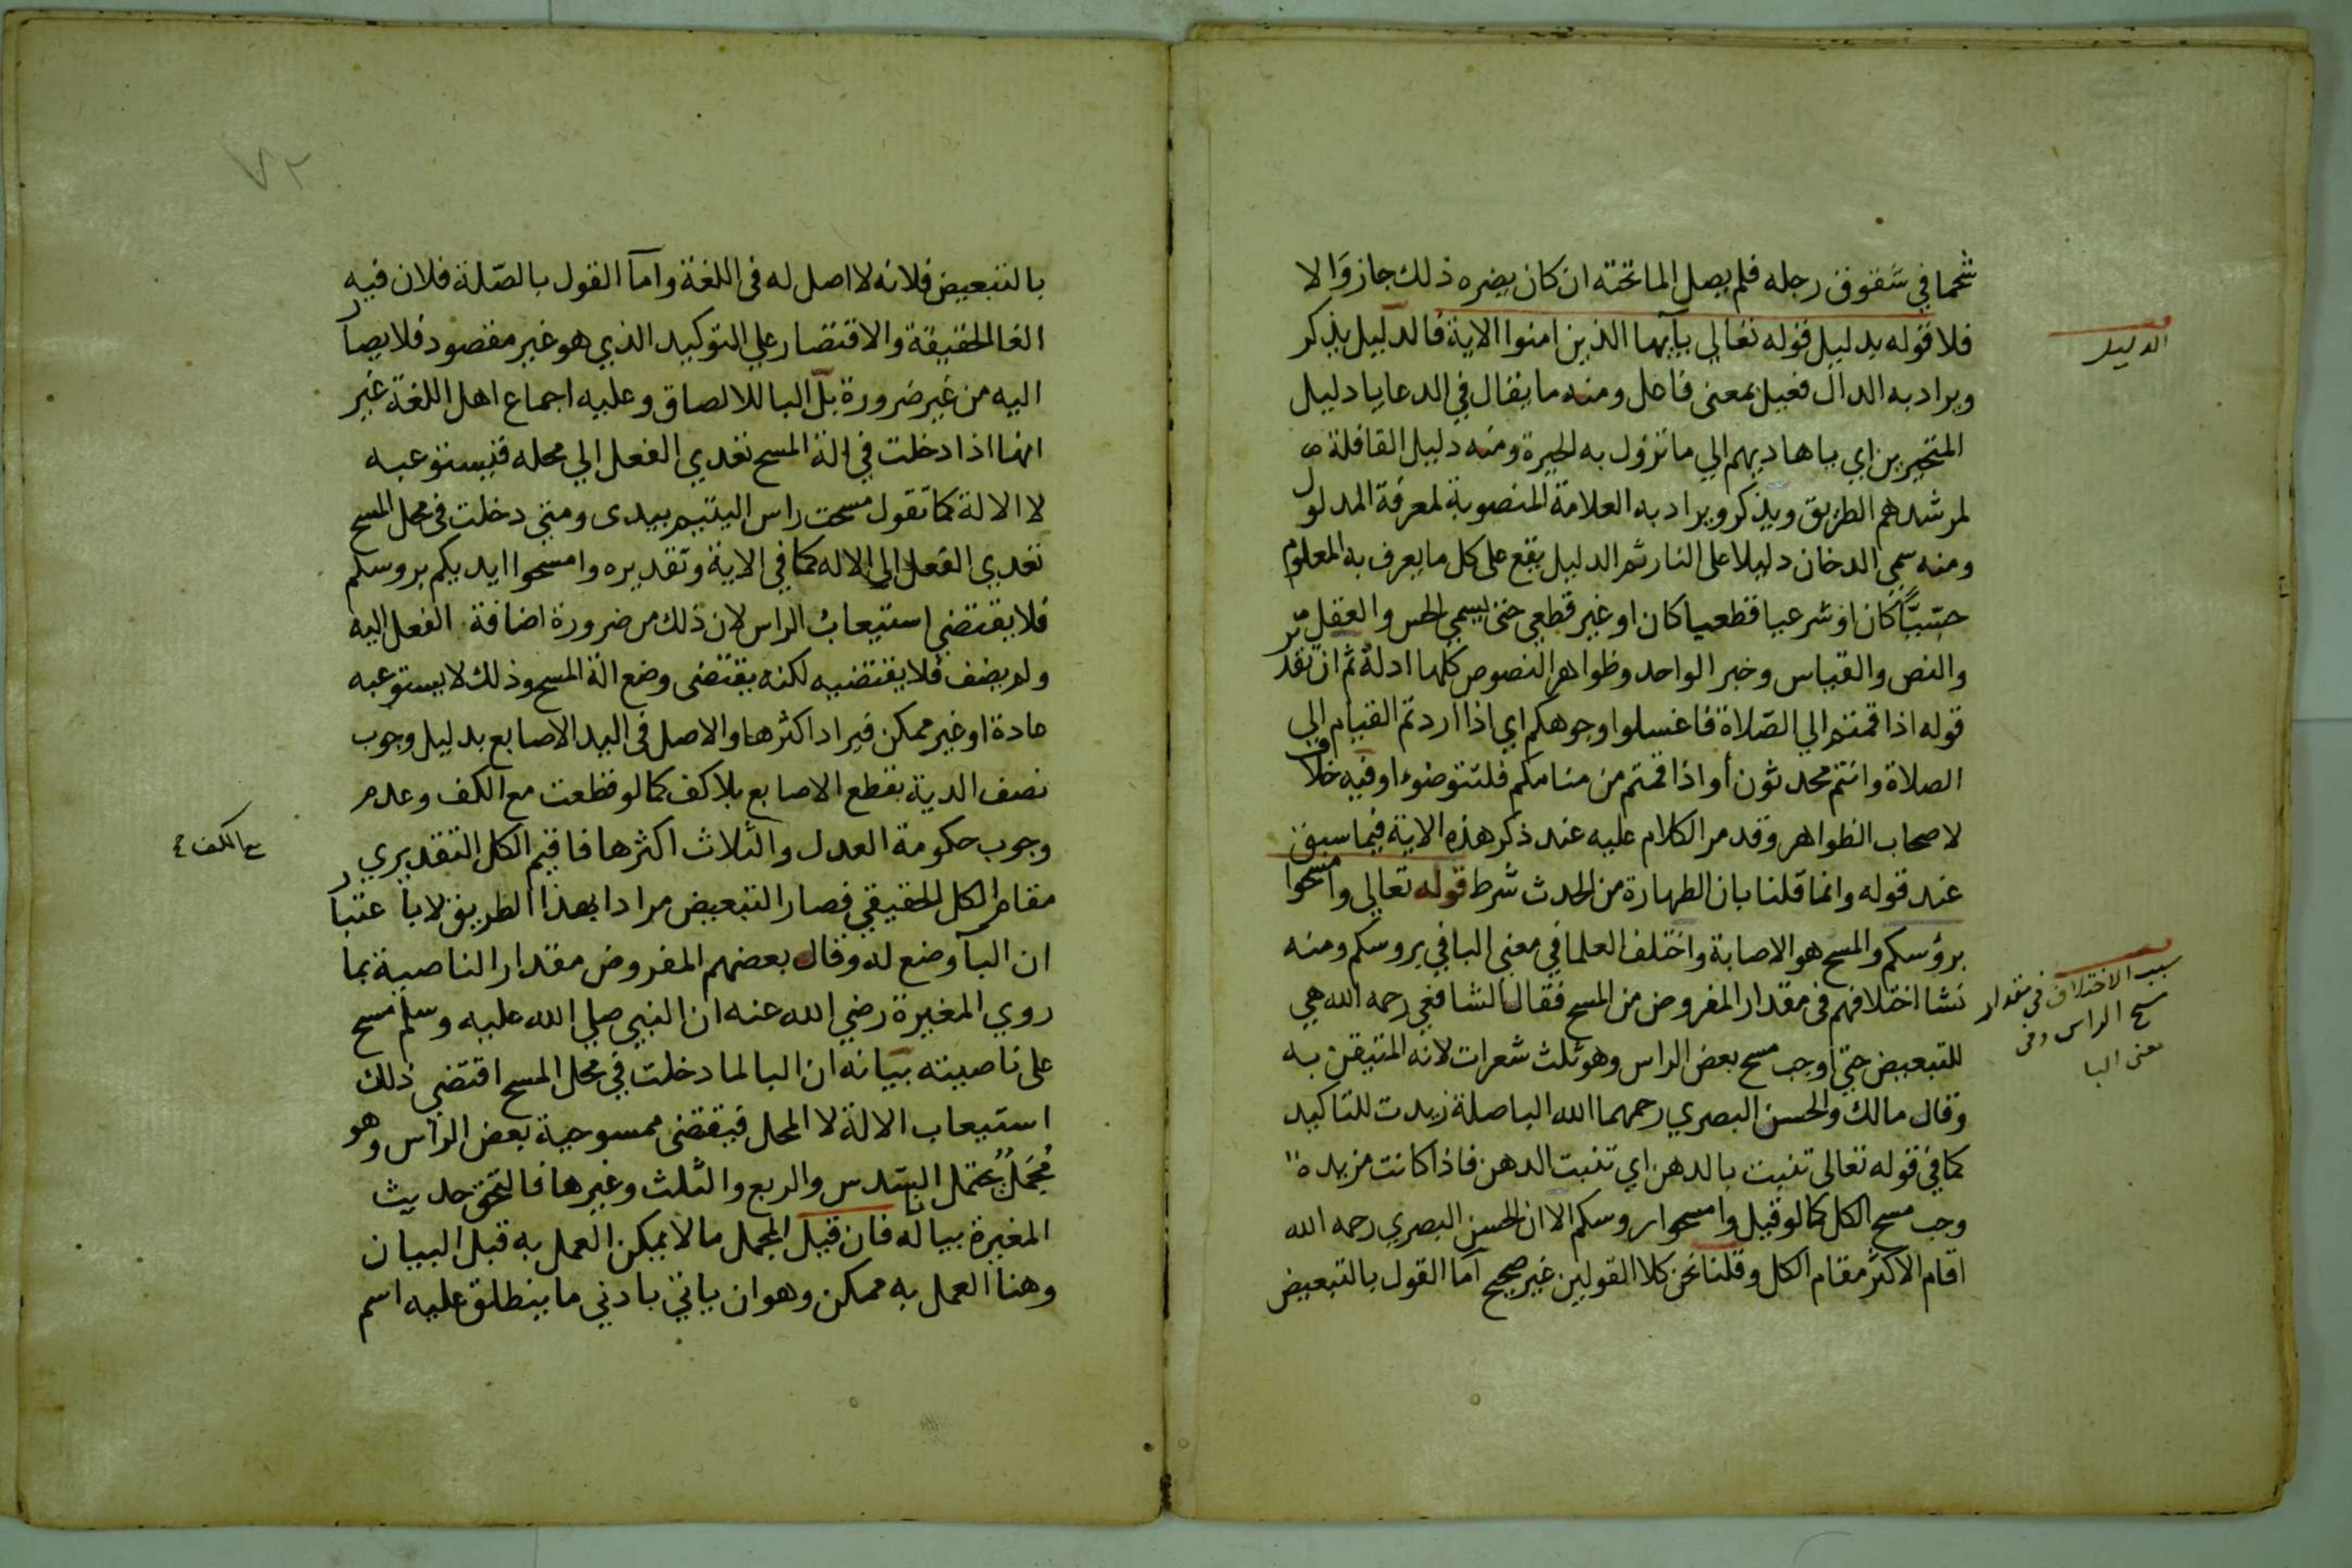 شحما في شقوق رجله فلم يصل الما تحته ان كان يضره ذلك جاز والا
فلا قوله بدليل قوله تعالي يآيها الذين امنوا الاية فالدليل يذكر
ويراد به الدال فعيل بمعنى فاعل ومنه ما يقال في الدعا يا دليل
المتحيرين اي يا هاديهم الي ما تزول به الحيرة ومنه دليل القافلة
لمرشدهم الطريق ويذكر ويراد به العلامة المنصوبة لمعرفة المدلول
ومنه سمي الدخان دليلا على النار ثم الدليل يقع على كل ما يعرف به المعلوم
حسيًّا كان او شرعيا قطعيا كان او غير قطعي حتى يسمي الحس والعقل
والنص والقياس وخبر الواحد وظواهر النصوص كلها ادلة ثم ان تقدير
قوله اذا قمتم الي الصّلاة فاغسلوا وجوهكم اي اذا اردتم القيام الي
الصلاة وانتم محدثون أو اذا قمتم من منامكم فلتتوضوءا وفيه خلاف
لاصحاب الظواهر وقد مر الكلام عليه عند ذكر هذه الاية فيما سبق
عند قوله وانما قلنا بان الطهارة من الحدث شرط قوله تعالي وامسحوا
برؤسكم والمسح هو الاصابة واختلف العلما في معني البا في بروسكم ومنه
نشا اختلافهم في مقدار المفروض من المسح فقال الشافعي رحمه الله هي
للتبعيض حتي اوجب مسح بعض الراس وهو ثلث شعرات لانه المتيقن به
وقال مالك والحسن البصري رحمهما الله الباصلة زيدت للتاكيد
كما في قوله تعالى تنبت بالدهن اي تنبت الدهن فاذا كانت مزيدة
وجب مسح الكل كما لو قيل وامسحوا روسكم الا ان الحسن البصري رحمه الله
اقام الاكثر مقام الكل وقلنا نحن كلا القولين غير صحيح آما القول بالتبعيض
الدليل
سبب الاختلاف في مقدار
مسح الراس وفي
معنى البا
٧٢
بالتبعيض فلانه لا اصل له في اللغة وامآ القول بالصّلة فلان فيه
الغا الحقيقة والاقتصار علي التوكيد الذي هو غير مقصود فلا يصار
اليه من غير ضرورة بل البا للالصاق وعليه اجماع اهل اللغة غير
انها اذا دخلت في الة المسح تعدي الفعل الي محله فيستوعبه
لا الالة كما تقول مسحت راس اليتيم بيدى ومتي دخلت في محل المسح
تعدي الفعل الي الاله كما في الاية وتقديره وامسحوا ايديكم بروسكم
فلا يقتضي استيعاب الراس لان ذلك من ضرورة اضافة الفعل اليه
ولم يضف فلا يقتضيه لكنه يقتضى وضع الة المسح وذلك لا يستوعبه
عادة او غير ممكن فيراد اكثرها والاصل في اليد الاصابع بدليل وجوب
نصف الدية بقطع الاصابع بلا كف كما لو قطعت مع الكف وعدم
وجوب حكومة العدل والثلاث اكثرها فاقيم الكل التقديري
مقام الكل الحقيقي فصار التبعيض مرادا بهذا الطريق لا باعتبار
ان البآ وضع له وقال بعضهم المفروض مقدار الناصية بما
روي المغيرة رضي الله عنه ان النبي صلي الله عليه وسلم مسح
على ناصيته بيانه ان البا لما دخلت في محل المسح اقتضي ذلك
استيعاب الالة لا المحل فيقتضى ممسوحية بعض الراس وهو
مُجمَلٌ يحتمل السّدس والربع والثلث وغيرها فالتحق حديث
المغيرة بيانا له فان قيل المجمل ما لا يمكن العمل به قبل البيان
وهنا العمل به ممكن وهو ان ياتي بادني ما ينطلق عليه اسم
مع الكف